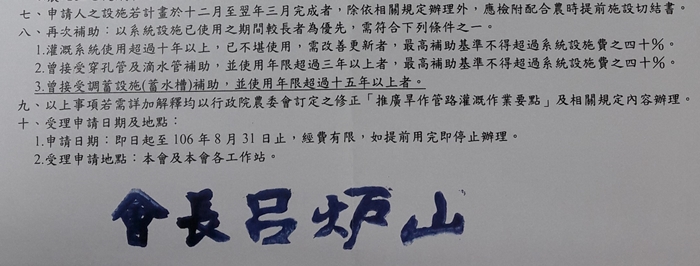 七、申請人之設施若計畫於十二月至翌年三月完成者，除依相關規定辦理外，應檢附配合農時提前施設切結書。
八、再次補助：以系統設施已使用之期間較長者為優先，需符合下列條件之一。
1.灌溉系統使用超過十年以上，已不堪使用，需改善更新者，最高補助基準不得超過系統設施費之四十%。
2.曾接受穿孔管及滴水管補助，並使用年限超過三年以上者，最高補助基準不得超過系統設施費之四十%。
3.曾接受調蓄設施(蓄水槽)補助，並使用年限超過十五年以上者。
九、以上事項若需詳加解釋均以行政院農委會訂定之修正「推廣旱作管路灌溉作業要點」及相關規定內容辦理。
十、受理申請日期及地點：
1.申請日期：即日起至 106 年 8 月 31 日止，經費有限，如提前用完即停止辦理。
2.受理申請地點：本會及本會各工作站。
會長呂炉山